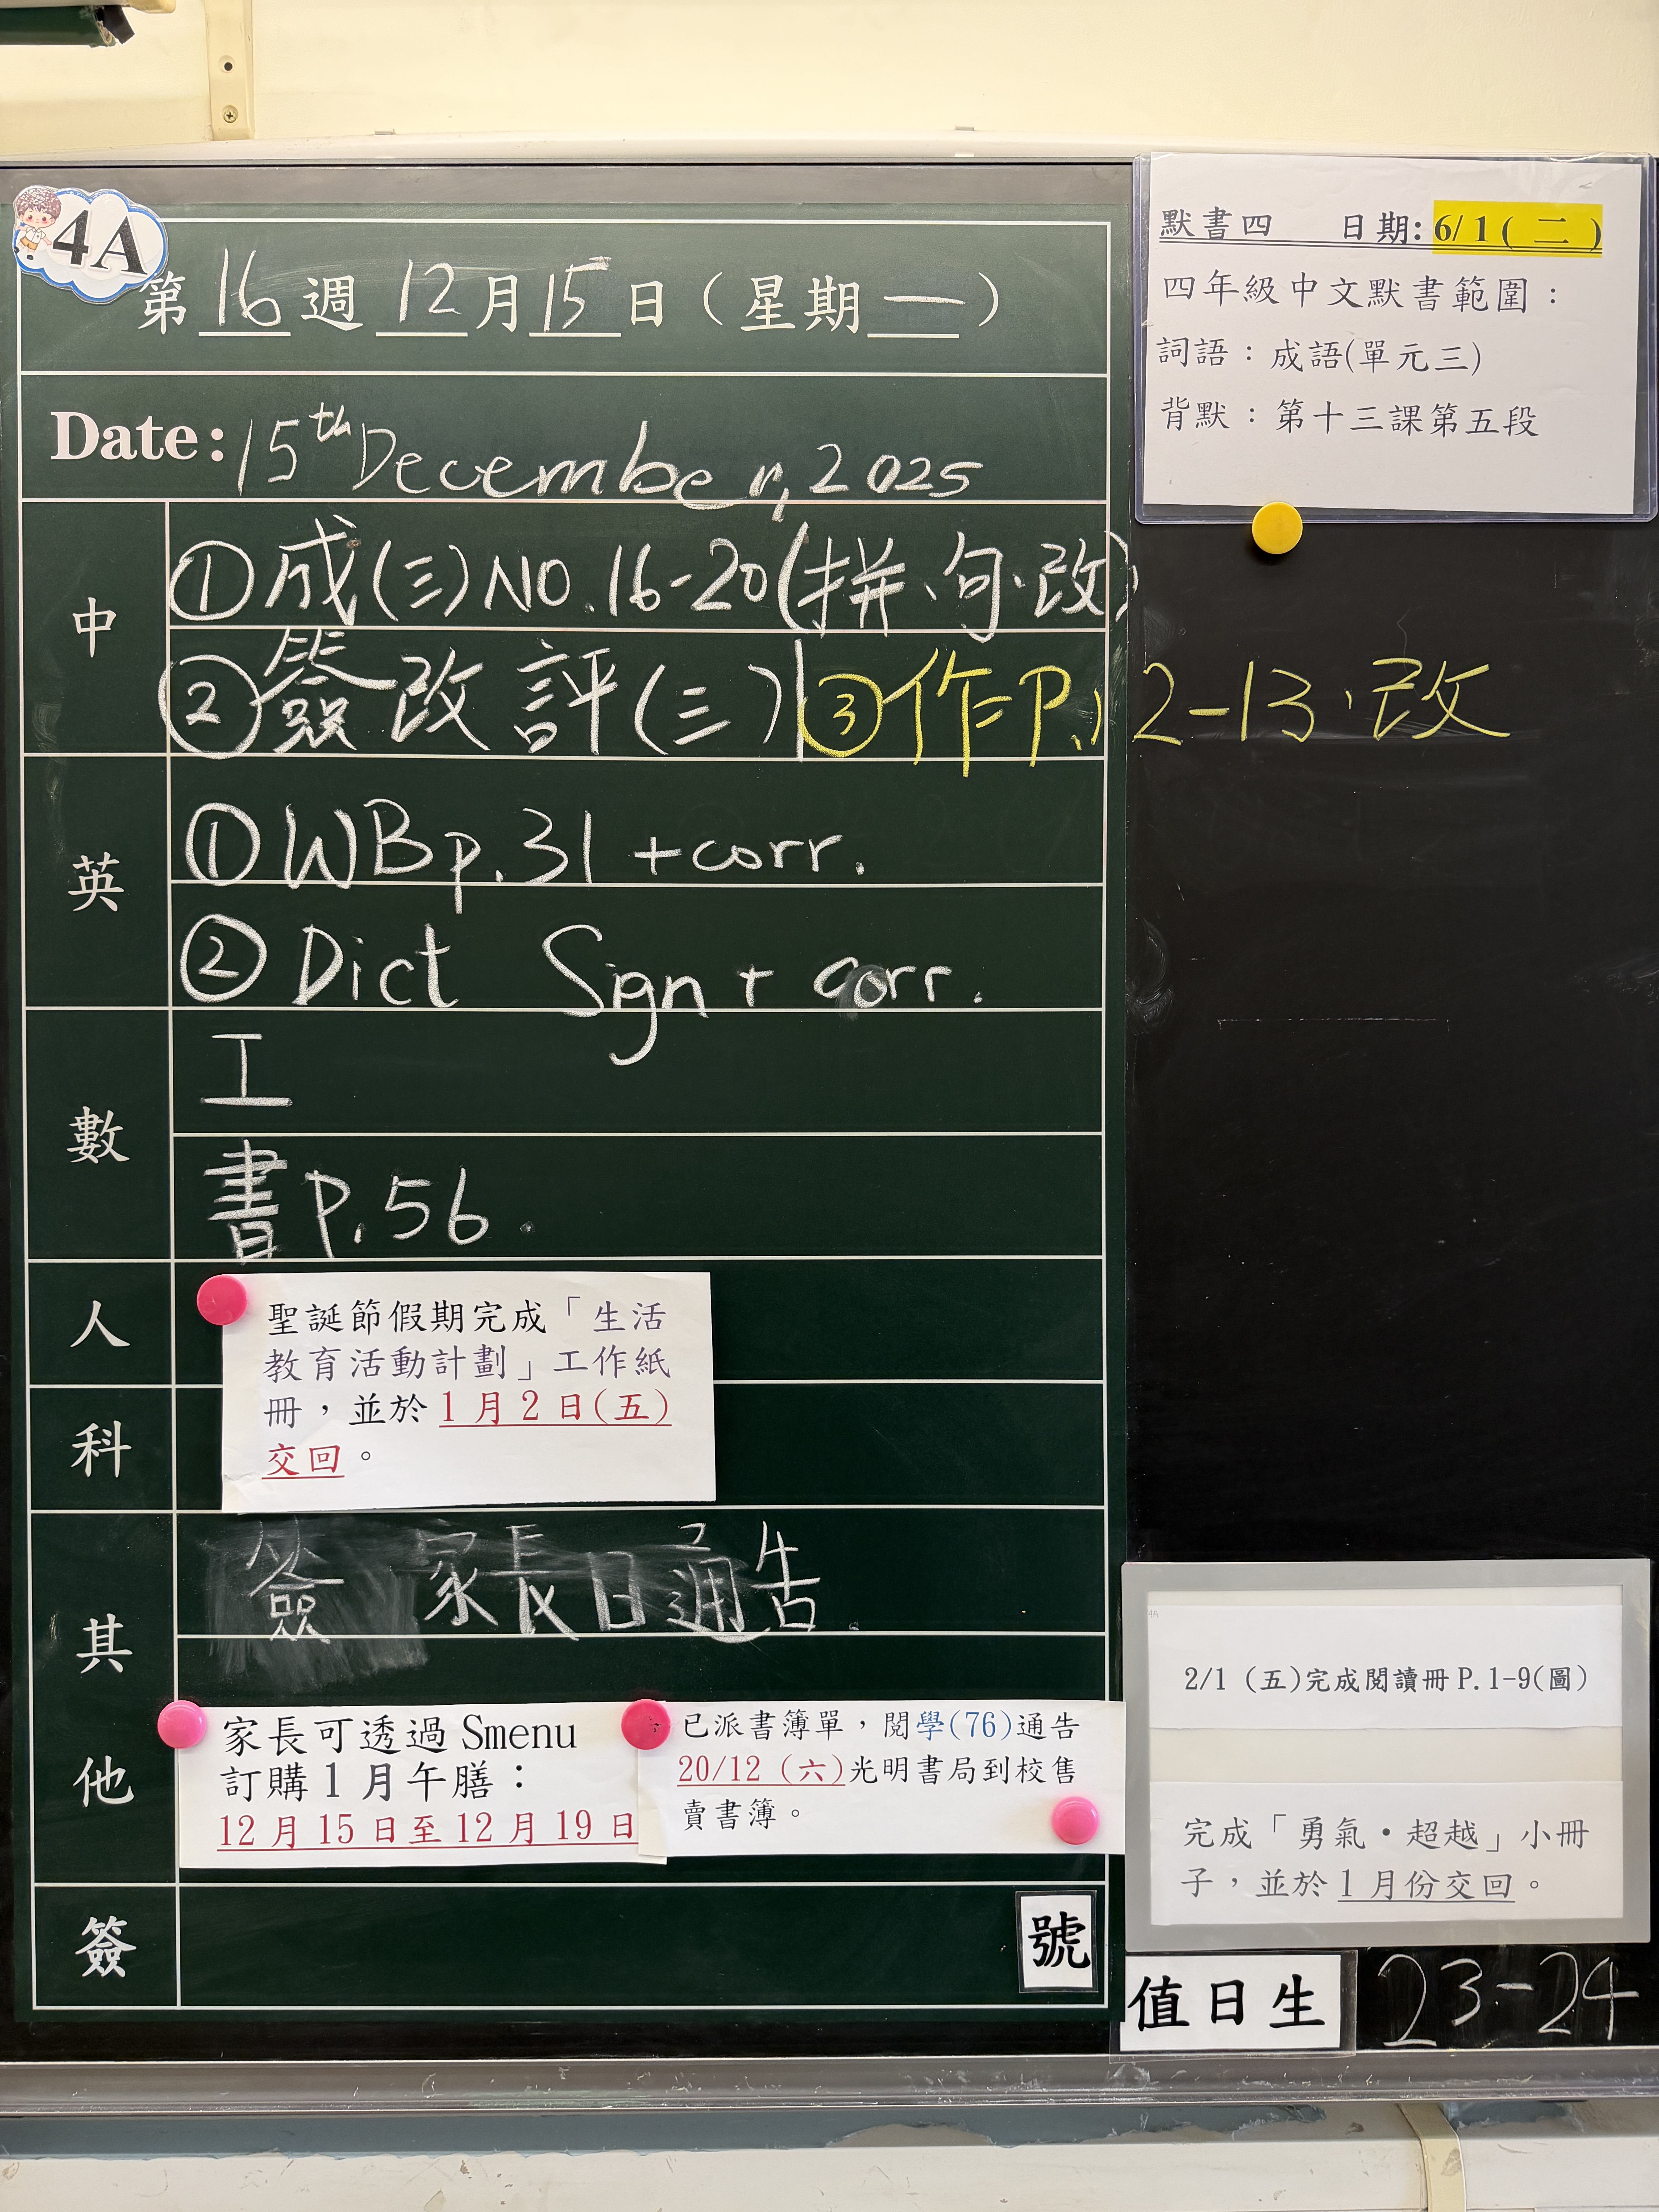 4A
第16週12月15日（星期一）
Date: 15th December, 2025
中
①成(三)NO.16-20(拼、句、改)
②簽改評(三) ③作二P.12-13、改
英
①WB p.31 +corr.
②Dict Sign + corr.
數
工
書P.56.
人
科
聖誕節假期完成「生活
教育活動計劃」工作紙
冊，並於1月2日(五)
交回。
其
他
簽 家長日通告.
家長可透過Smenu
訂購1月午膳：
12月15日至12月19日
已派書簿單，閱學(76)通告
20/12（六)光明書局到校售
賣書簿。
簽
號
默書四 日期:6/1( 二 )
四年級中文默書範圍：
詞語：成語(單元三)
背默：第十三課第五段
4A
2/1 (五)完成閱讀冊P.1-9(圖)
完成「勇氣・超越」小冊
子，並於1月份交回。
值日生 23-24